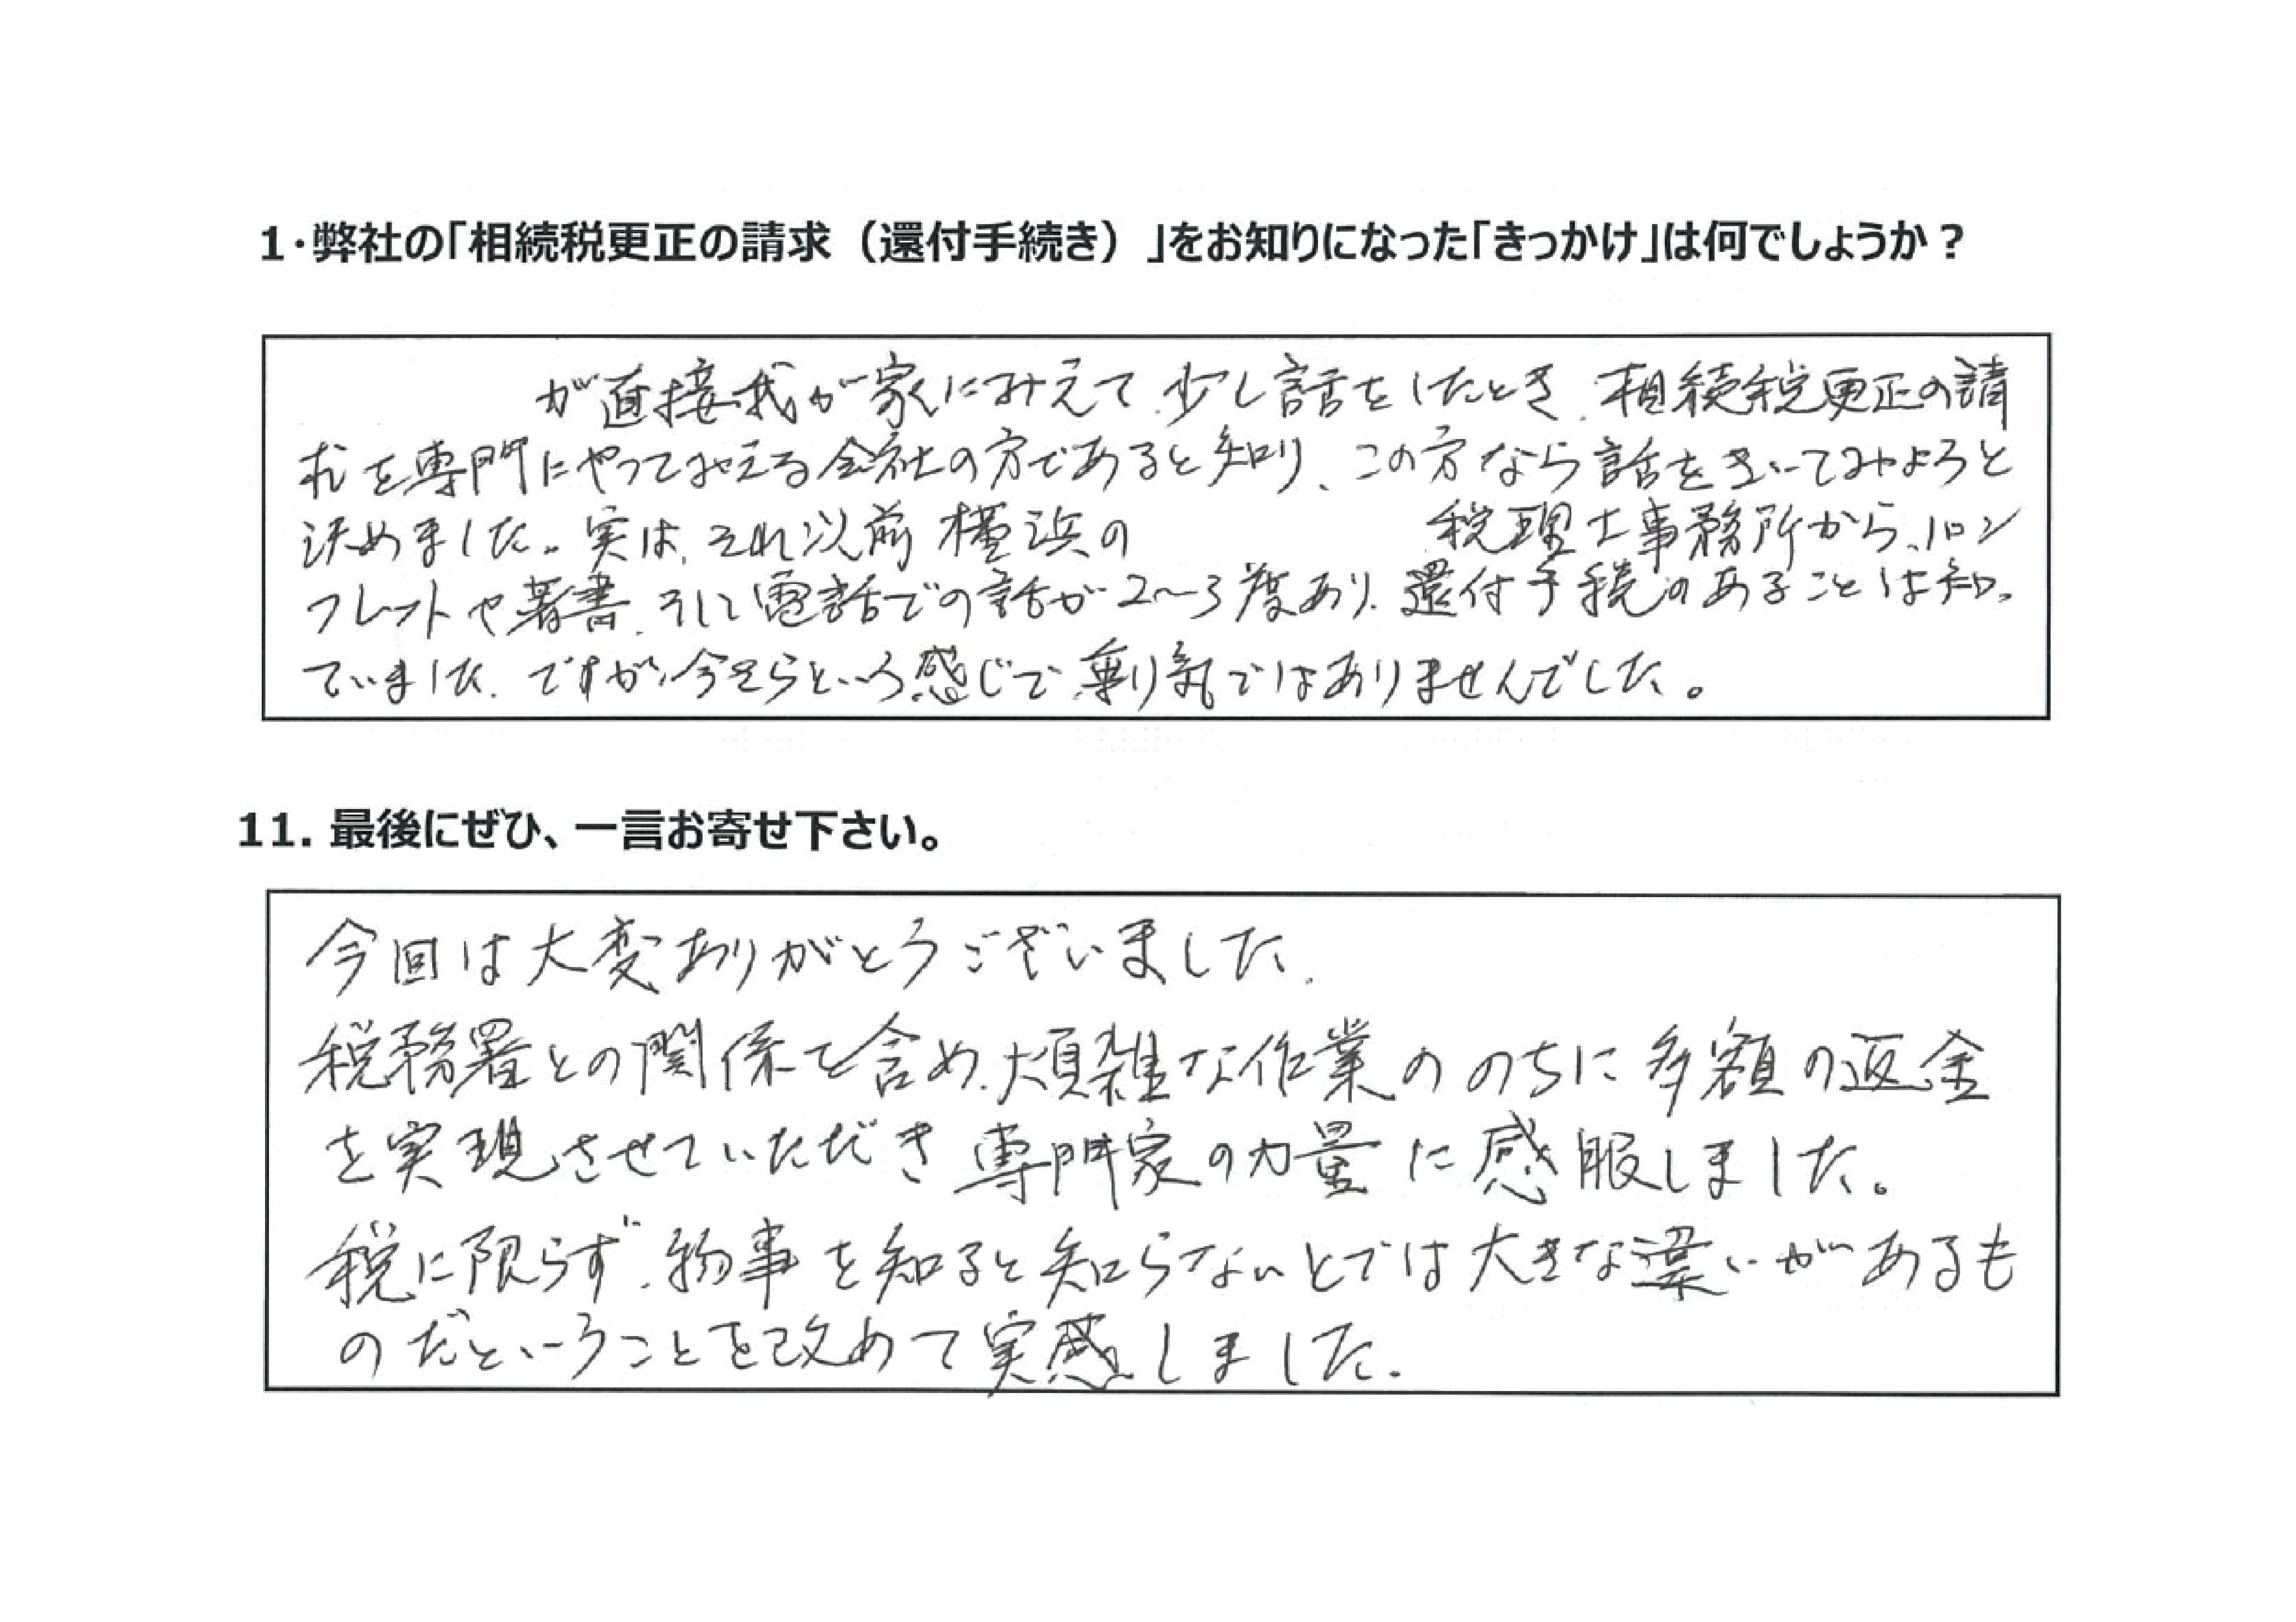 1・弊社の「相続税更正の請求（還付手続き）」をお知りになった「きっかけ」は何でしょうか？
が直接我が家にみえて、少し話をしたとき、相続税更正の請
求を専門にやってみえる会社の方であると知り、この方なら話をきいてみようと
決めました。実は、それ以前横浜の 税理士事務所から、パン
フレットや著書、そして電話での話が2～3度あり、還付手続のあることは知っ
ていました。ですが、今さらという感じで、乗り気ではありませんでした。
11. 最後にぜひ、一言お寄せ下さい。
今回は大変ありがとうございました。
税務署との関係を含め、煩雑な作業ののちに多額の返金
を実現させていただき専門家の力量に感服しました。
税に限らず、物事を知ると知らないとでは大きな違いがあるも
のだということを改めて実感しました。